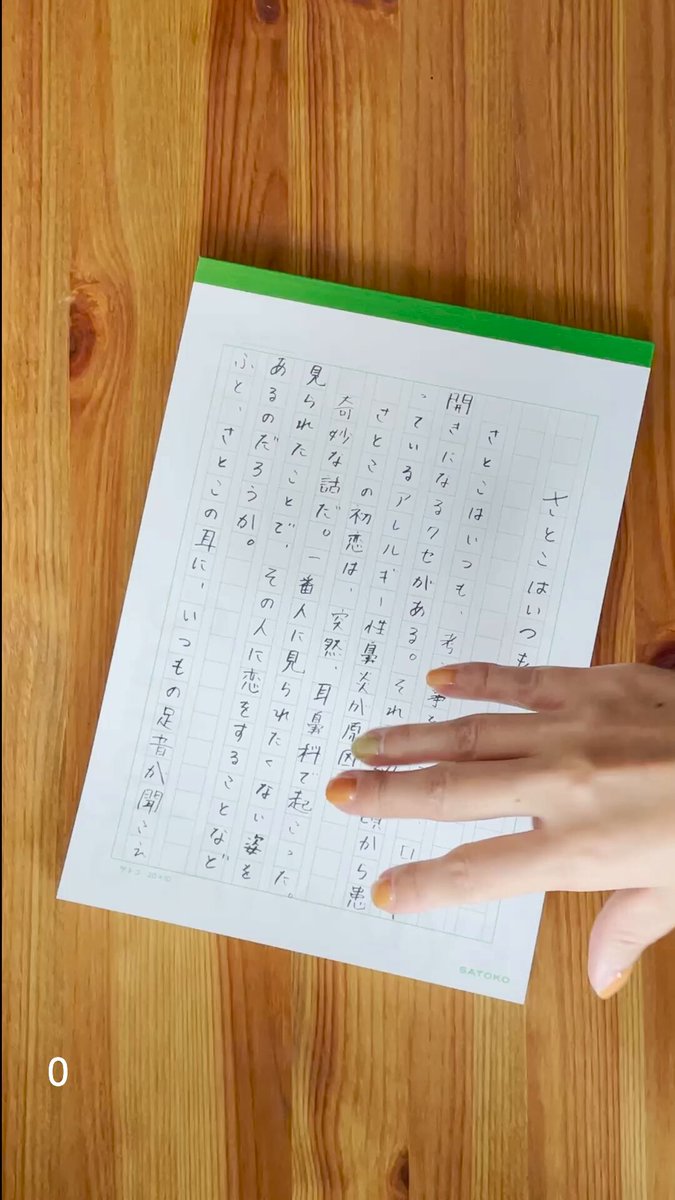 さとこはいつも
さとこはいつも、考 事
開きになるクセがある。それ 頃から患
っているアレルギー性鼻炎が原因
さとこの初恋は、突然、耳鼻科で起こった。
奇妙な話だ。一番人に見られたくない姿を
見られたことで、その人に恋をすることなど
あるのだろうか。
ふと、さとこの耳に、いつもの足音が聞こえ
サトコ 20×10
SATOKO
0